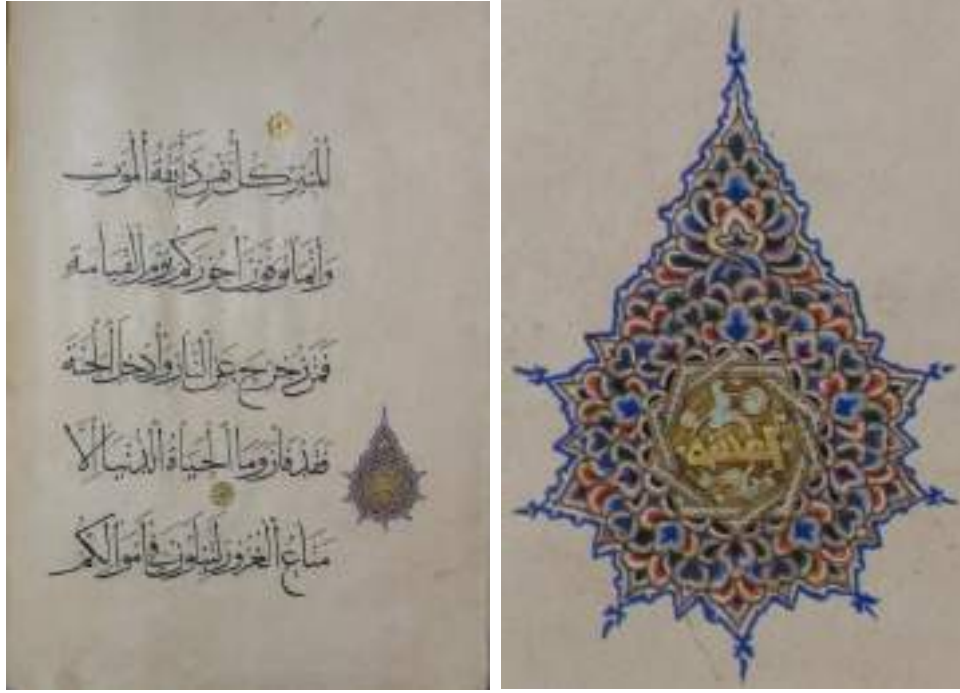 المنير كل نفس ذائقة الموت
وإنما توفون أجوركم يوم القيامة
فمن زحزح عن النار وأدخل الجنة
فقد فاز وما الحياة الدنيا إلا
متاع الغرور لتبلون في أموالكم